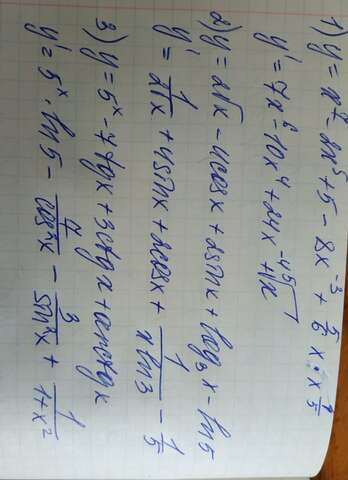 1) y = x⁷ - 2x⁵ + 5 - 8x⁻³ + 5/6 x · x^(1/5)
y' = 7x⁶ - 10x⁴ + 24x⁻⁴ + ⁵√x
2) y = 2√x - 4cosx + 2sinx + log₃x - ln5
y' = 1/√x + 4sinx + 2cosx + 1/(x ln3) - 1/5
3) y = 5ˣ - 7tgx + 3ctgx + arctgx
y' = 5ˣ · ln5 - 7/cos²x - 3/sin²x + 1/(1+x²)